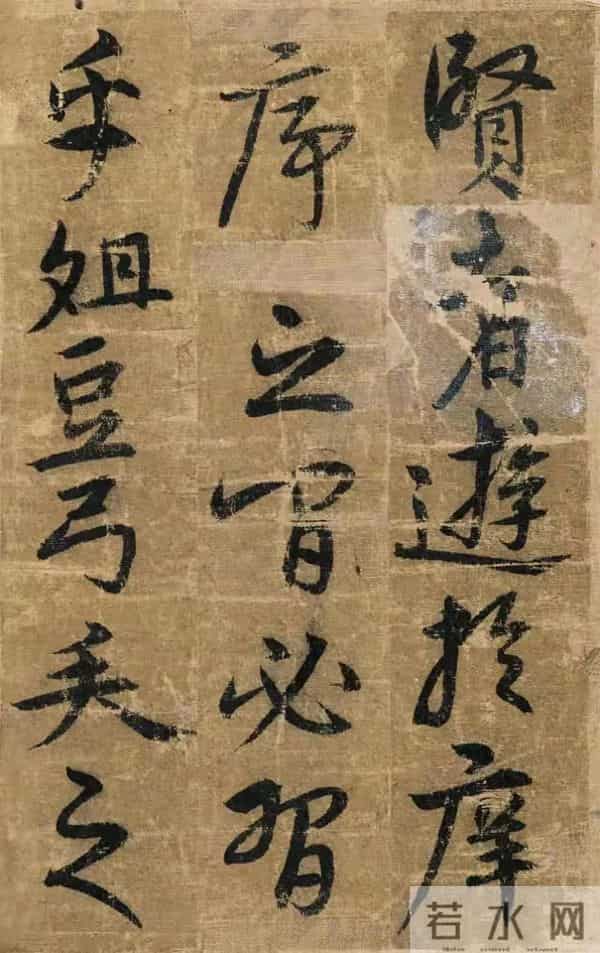 賢者遊於庠
序之間必習
乎俎豆弓矢之
若水网